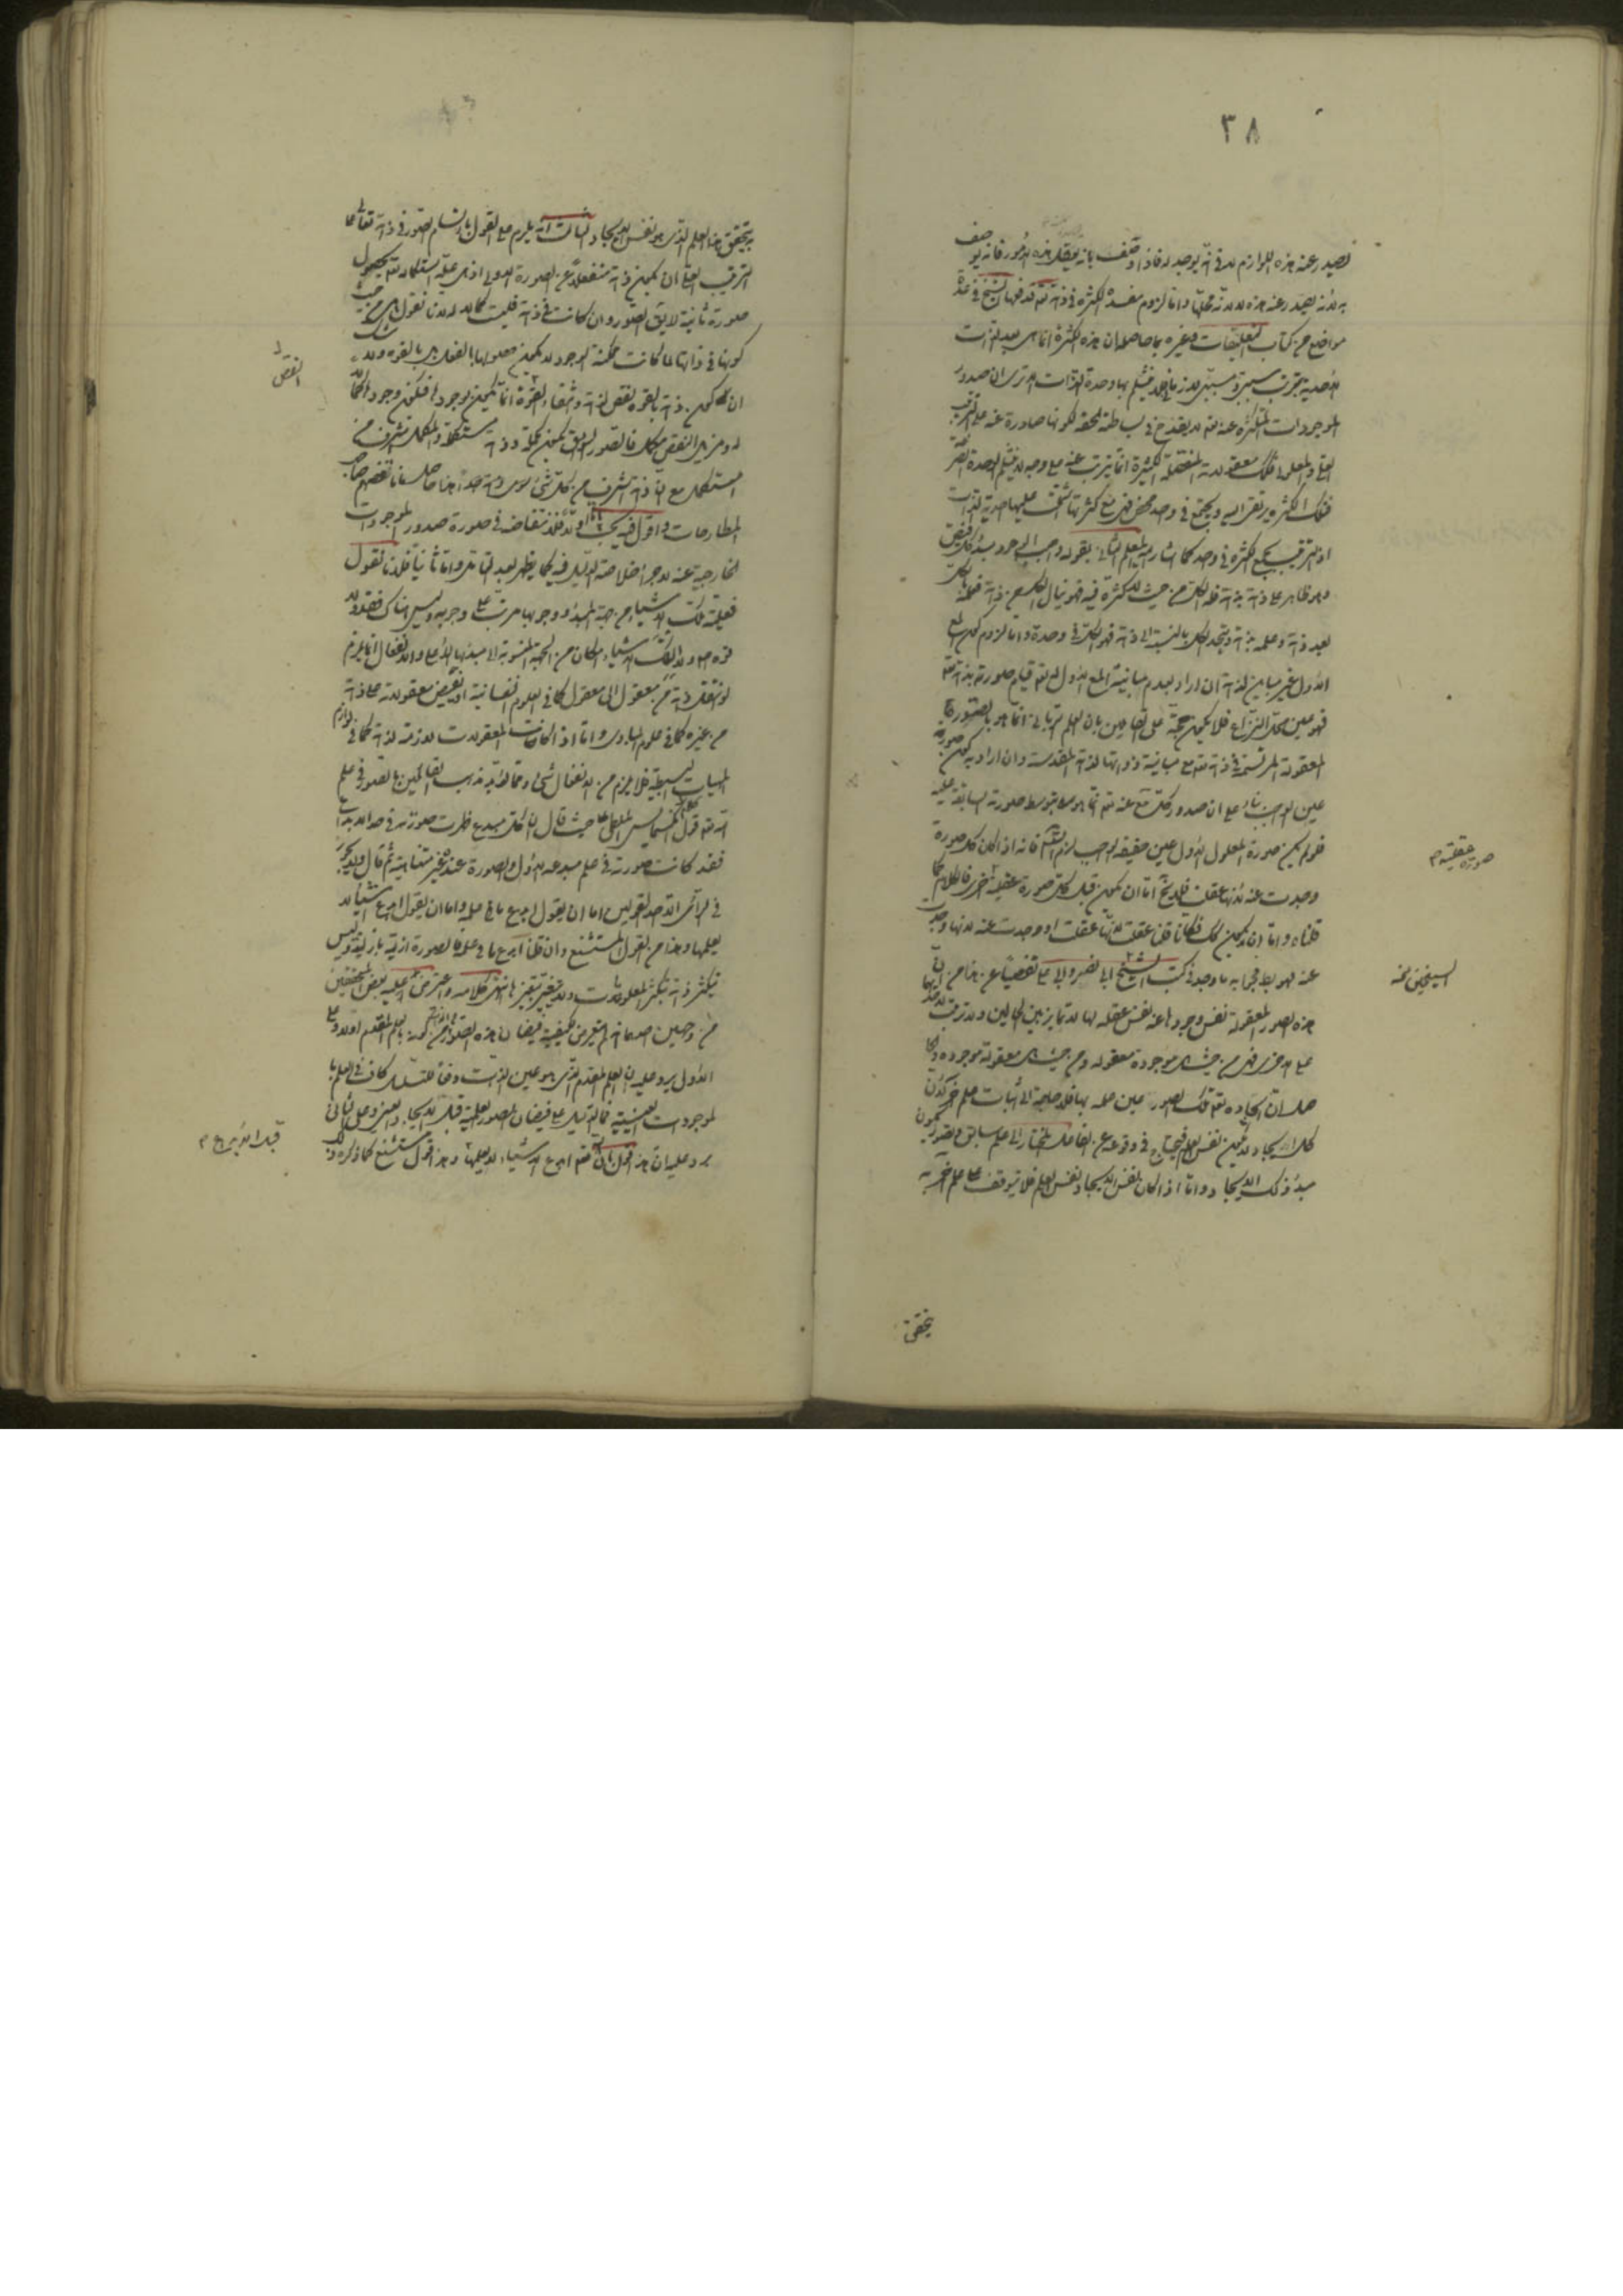 ٣٨
تصدر عنه هذه اللوازم لا فى انه يوجد له فاذا وصف بانه يعقل هذه الامور فانه يوصف
به لانه يصدر عنه هذه لا لانه محلها واما لزوم مفسدة الكثرة فى ذاته تعالى فدفعها الشيخ فى عدة
مواضع من كتاب التعليقات وغيره بما حاصله ان هذه الكثرة انما هى بعد الذات
الاحدية بترتيب سببى ومسببى لا زمانى فلا ينثلم بها وحدة الذات الا ترى ان صدور
الموجودات المتكثرة عنه تعالى لا يقدح فى بساطته الحقة لكونها صادرة عنه على الترتيب
العلى والمعلولى فكذلك معقولاته المفصلة الكثيرة انما يترتب عنه على وجه لا ينثلم الوحدة الصرفة
فتلك الكثرة يرتقى اليه ويجتمع فى واحد محض فهى مع كثرتها اشتملت عليها احدية الذات
اذ الترتيب يجمع الكثرة فى واحد كما اشار اليه المعلم الثانى بقوله واجب الوجود مبدأ كل فيض
وهو ظاهر على ذاته بذاته فله الكل من حيث لا كثرة فيه فهو ينال الكل من ذاته فعلمه بالكل
بعد ذاته وعلمه بذاته ويتحد الكل بالنسبة الى ذاته فهو الكل فى وحدة واما لزوم كون المعلول
الاول غير مباين لذاته ان اراد بعدم مباينة المعلول الاول له تعالى قيام صورته بذاته تعالى
فهو عين محل النزاع فلا يكون حجة على القائلين بان العلم الربانى انما هو بالصورة
المعقولة المرتسمة فى ذاته تعالى مع مباينة ذواتها لذاته المقدسة وان اراد به كون صورته
عين الواجب بناء على ان صدور كل عنه تعالى انما هو بتوسط صورته السابقة عليه
فلو لم يكن صورة المعلول الاول عين حقيقة الواجب لزم التسلسل فانه اذا كان كل صورة
وجدت عنه لانها عقلت فلا يخ اما ان يكون قبل كل صورة عقلية اخرى فالكلام كما
قلناه واما ان لا يكون كذلك فكأنا قلنا عقلت لانها عقلت او وجدت عنه لانها وجدت
عنه فهو باطل بما وجد فى كتب الشيخ ابى نصر وابى على تفصيا عن هذا من ان
هذه الصور المعقولة نفس وجودها عنه نفس عقله لها لا تمايز بين الحالين ولا ترتب لاحدهما
على الاخرى فهى من حيث هى موجودة معقولة ومن حيث هى معقولة موجودة والحاصل
ان ايجاده تعالى تلك الصور عين علمه بها فلا حاجة الى اثبات علم اخر لان
كل ايجاد لا يكون نفس العلم فيحتاج فى وقوعه عن الفاعل المختار الى علم سابق وتصور يكون
مبدأ ذلك الايجاد واما اذا كان نفس الايجاد نفس العلم فلا يتوقف على علم اخر به
صورة عقلية م
الشيخين نخه
يتحقق
يتحقق هذا العلم الذى هو نفس الايجاد والثالث انه يلزم على القول بارتسام الصور فى ذاته تعالى على
الترتيب العلى ان يكون ذاته منفعلا عن الصورة الاولى اذ هى علة استكماله تعالى بحصول
صورة ثانية لا يقال الصور وان كانت فى ذاته فليست كمالا له لانا نقول هى من حيث
كونها فى ذاتها لما كانت ممكنة الوجود لا يكون حصولها بالفعل بل بالقوة ولا شك
ان كون ذاته بالقوة نقص لذاته وانتفاء القوة انما يكون بوجودها فيكون وجودها كمالا
له ومزيل النقص مكمل فالصور السابقة يكون مكملة وذاته مستكملة والمكمل اشرف من
المستكمل مع ان ذاته اشرف من كل شئ سوى ذاته هذا حاصل ما نقضهم صاحب
المطارحات واقول فيه بحث اما اولا فلانتقاضه فى صورة صدور الموجودات
الخارجية عنه لاجراء خلاصة الدليل فيه كما يظهر بعد التامل واما ثانيا فلانا نقول
فعلية تلك الاشياء من جهة المبدأ ووجوبها مترتب على وجوبه وليس هناك فقد ولا
قوة ولا لتلك الاشياء امكان من الجهة المنسوبة الى مبدئها الاعلى والانفعال انما يلزم
لو انتقل ذاته من معقول الى معقول كما فى العلوم النفسانية او يفيض معقولاته على ذاته
من غيره كما فى علوم المبادى واما اذا كانت المعقولات لازمة لذاته كما فى لوازم
المهيات البسيطة فلا يلزم من الانفعال شئ ومما يؤيد مذهب القائلين بالصور فى علم
الله تعالى قول انكسيمايس الملطى حيث قال ان كل مبدع ظهرت صورته فى حد الابداع
فقد كانت صورته فى علم مبدعه الاول والصورة عنده غير متناهية ثم قال ولا يجوز
فى الرأى الا احد القولين اما ان يقول ابدع ما فى علمه واما ان يقول ابدع اشياء لا
يعلمها وهذا من القول المستشنع وان قلنا ابدع ما فى علمه فالصورة ازلية بازليته وليس
يتكثر ذاته بتكثر المعلومات ولا يتغير بتغيرها انتهى كلامه واعترض عليه بعض المحققين
من وجهين احدهما انه لم يتعرض لكيفية فيضان هذه الصور من كونه بالعلم المقدم او لا وعلى
الاول يرد عليه ان العلم المقدم الذى هو عين الذات دفعا للتسلسل كاف فى العلم بالموجودات
العينية فما الدليل على فيضان الصور العلمية قبل الايجاد العينى وعلى الثانى
يرد عليه ان هذا قول بان الله تعالى ابدع الاشياء لا يعلمها وهذا قول مستشنع كما ذكره
النقص
قبل الابداع م